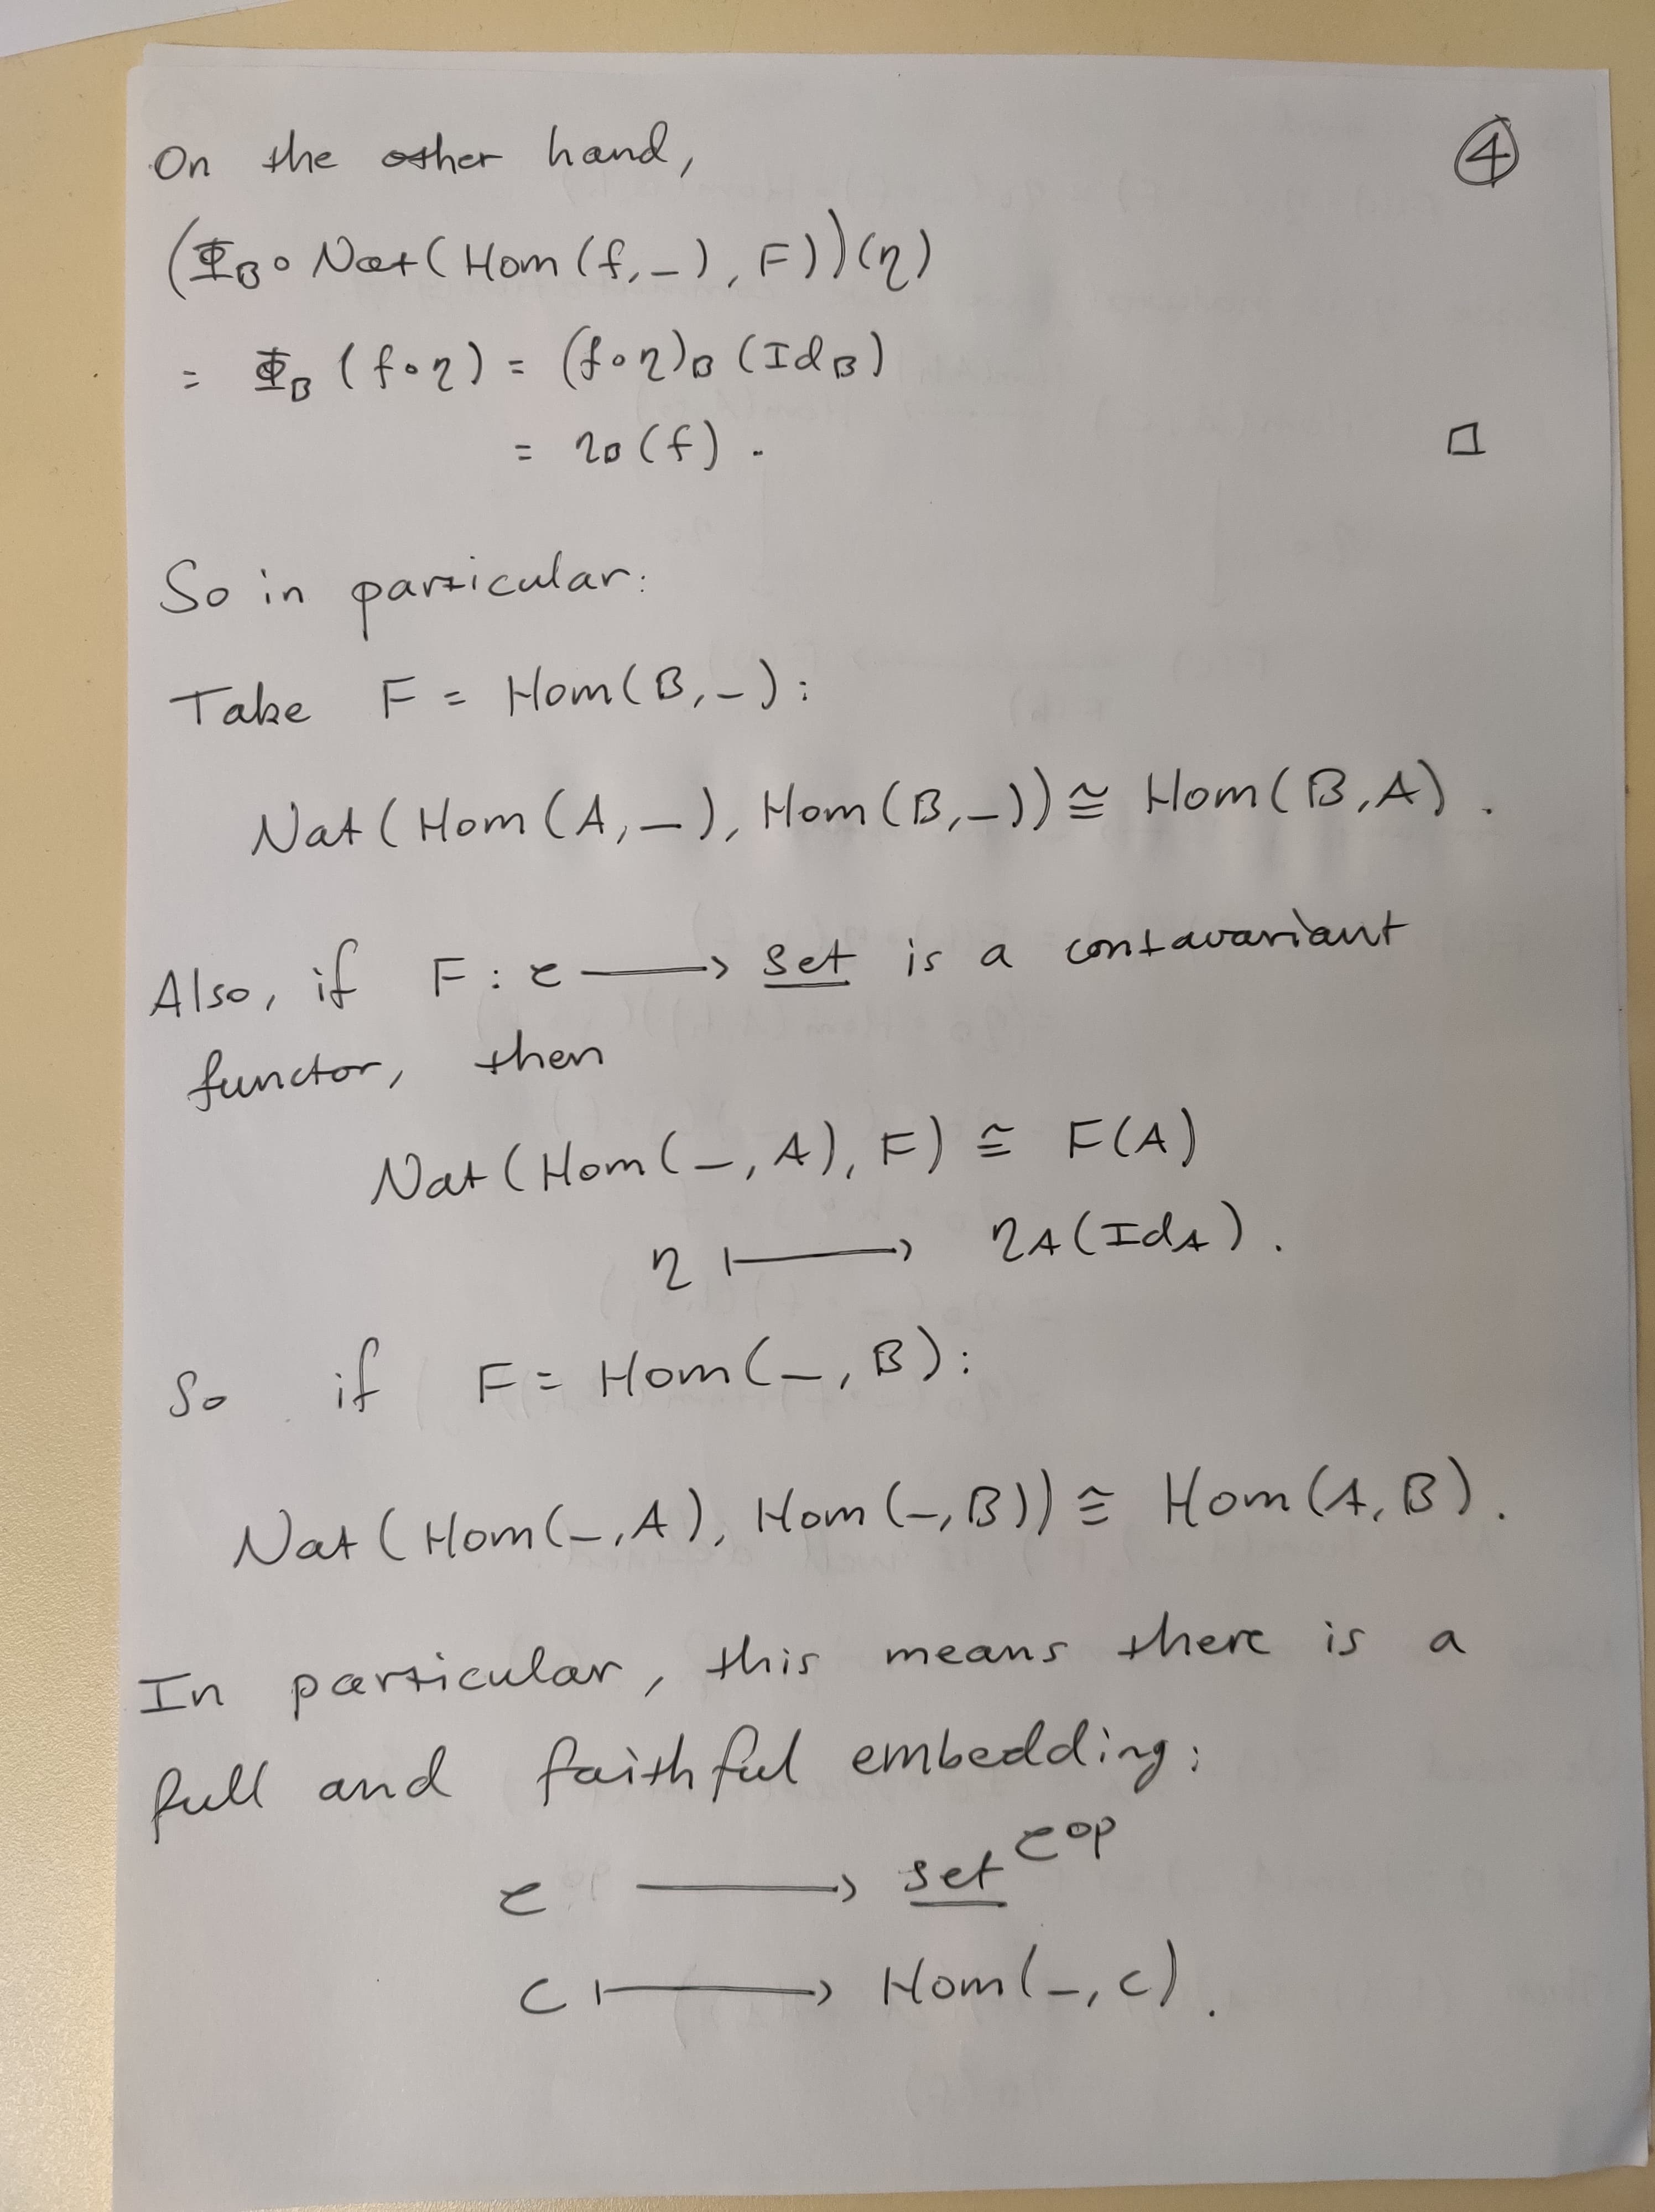 On the other hand, ④
(Φ_B ∘ Nat(Hom(f,−), F))(η)
= Φ_B (f∘η) = (f∘η)_B (Id_B)
= η_B(f). □
So in particular:
Take F = Hom(B,−):
Nat(Hom(A,−), Hom(B,−)) ≅ Hom(B,A).
Also, if F : C ⟶ Set is a contavariant
functor, then
Nat(Hom(−,A), F) ≅ F(A)
η ⟼ η_A(Id_A).
So if F = Hom(−,B):
Nat(Hom(−,A), Hom(−,B)) ≅ Hom(A,B).
In particular, this means there is a
full and faithful embedding:
C ⟶ Set^C^op
C ⟼ Hom(−,C).